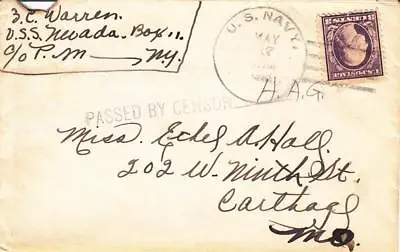 Z.C. Warren
U.S.S. Nevada. Box 11.
c/o P.M. N.Y.
U.S. NAVY.
MAY
H.A.G.
PASSED BY CENSOR
Miss. Ethel A. Hall.
202 W. Ninth St.
Carthage
Mo.